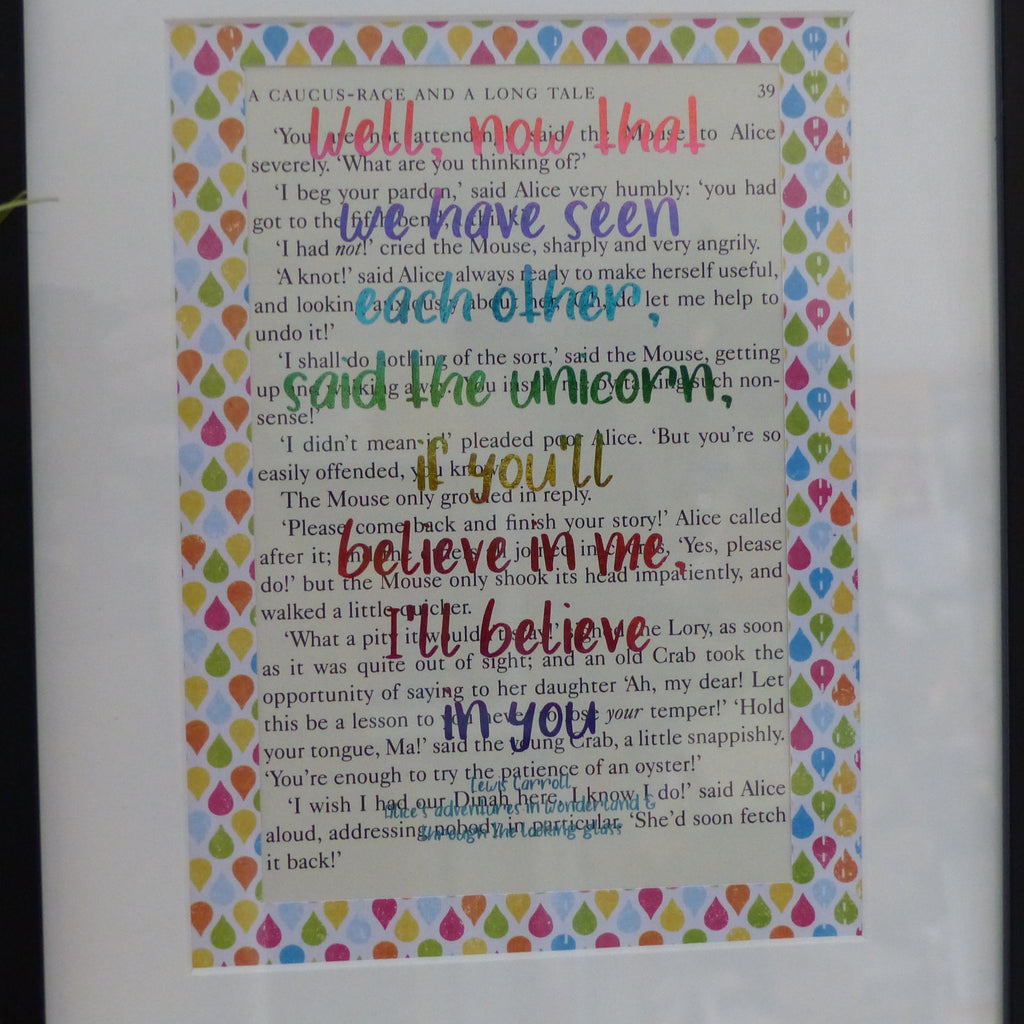 A CAUCUS-RACE AND A LONG TALE 39
‘You are not attending!’ said the Mouse to Alice
severely. ‘What are you thinking of?’
‘I beg your pardon,’ said Alice very humbly: ‘you had
got to the fifth bend, I think?’
‘I had not!’ cried the Mouse, sharply and very angrily.
‘A knot!’ said Alice, always ready to make herself useful,
and looking anxiously about her. ‘Oh, do let me help to
undo it!’
‘I shall do nothing of the sort,’ said the Mouse, getting
up and walking away. ‘You insult me by talking such non-
sense!’
‘I didn’t mean it!’ pleaded poor Alice. ‘But you’re so
easily offended, you know!’
The Mouse only growled in reply.
‘Please come back and finish your story!’ Alice called
after it; and the others all joined in chorus, ‘Yes, please
do!’ but the Mouse only shook its head impatiently, and
walked a little quicker.
‘What a pity it wouldn’t stay!’ sighed the Lory, as soon
as it was quite out of sight; and an old Crab took the
opportunity of saying to her daughter ‘Ah, my dear! Let
this be a lesson to you never to lose your temper!’ ‘Hold
your tongue, Ma!’ said the young Crab, a little snappishly.
‘You’re enough to try the patience of an oyster!’
‘I wish I had our Dinah here, I know I do!’ said Alice
aloud, addressing nobody in particular. ‘She’d soon fetch
it back!’
Well, now that
we have seen
each other,
said the unicorn,
if you'll
believe in me,
I'll believe
in you
Lewis Carroll
Alice's adventures in Wonderland &
through the looking glass